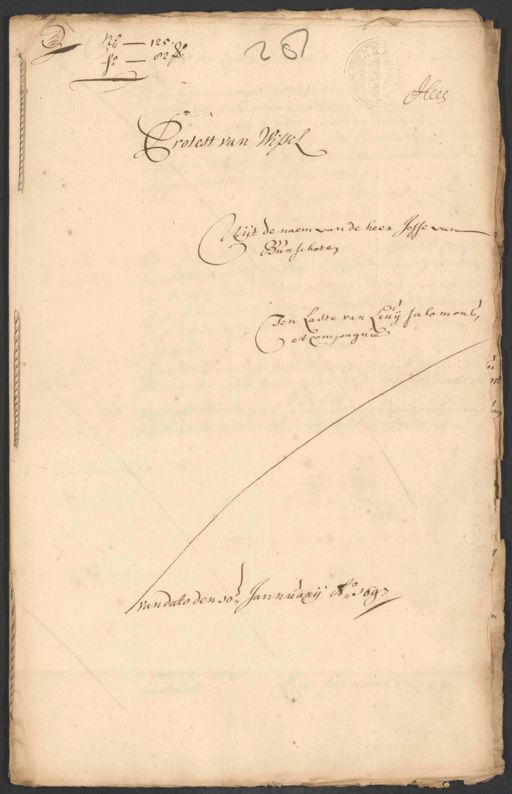 No — 125
fo — 82
28
Protest van Wissel
Uijt de naem van de heer Jesse van
Bunschoten
Ten Laste van Levij Salomons
et Compagnie
van dato den 10 Jannuarij Ao 1697